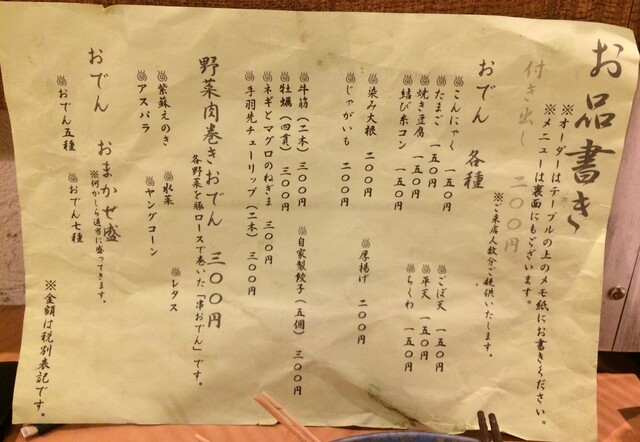 お品書き
※オーダーはテーブルの上のメモ紙にお書きください。
※メニューは裏面にもございます。
付き出し 二〇〇円
※ご来店人数分ご提供いたします。
おでん 各種
こんにゃく 一五〇円
ごぼ天 一五〇円
たまご 一五〇円
平天 一五〇円
焼き豆腐 一五〇円
ちくわ 一五〇円
結び糸コン 一五〇円
染み大根 二〇〇円
厚揚げ 二〇〇円
じゃがいも 二〇〇円
牛筋（二本）三〇〇円
自家製餃子（五個）三〇〇円
牡蠣（四貫）三〇〇円
ネギとマグロのねぎま 三〇〇円
手羽先チューリップ（二本）三〇〇円
野菜肉巻きおでん 三〇〇円
各野菜を豚ロースで巻いた「串おでん」です。
紫蘇えのき
水菜
レタス
アスパラ
ヤングコーン
おでん おまかせ盛
※何かしら適当に盛ってきます。
おでん五種
おでん七種
※金額は税別表記です。